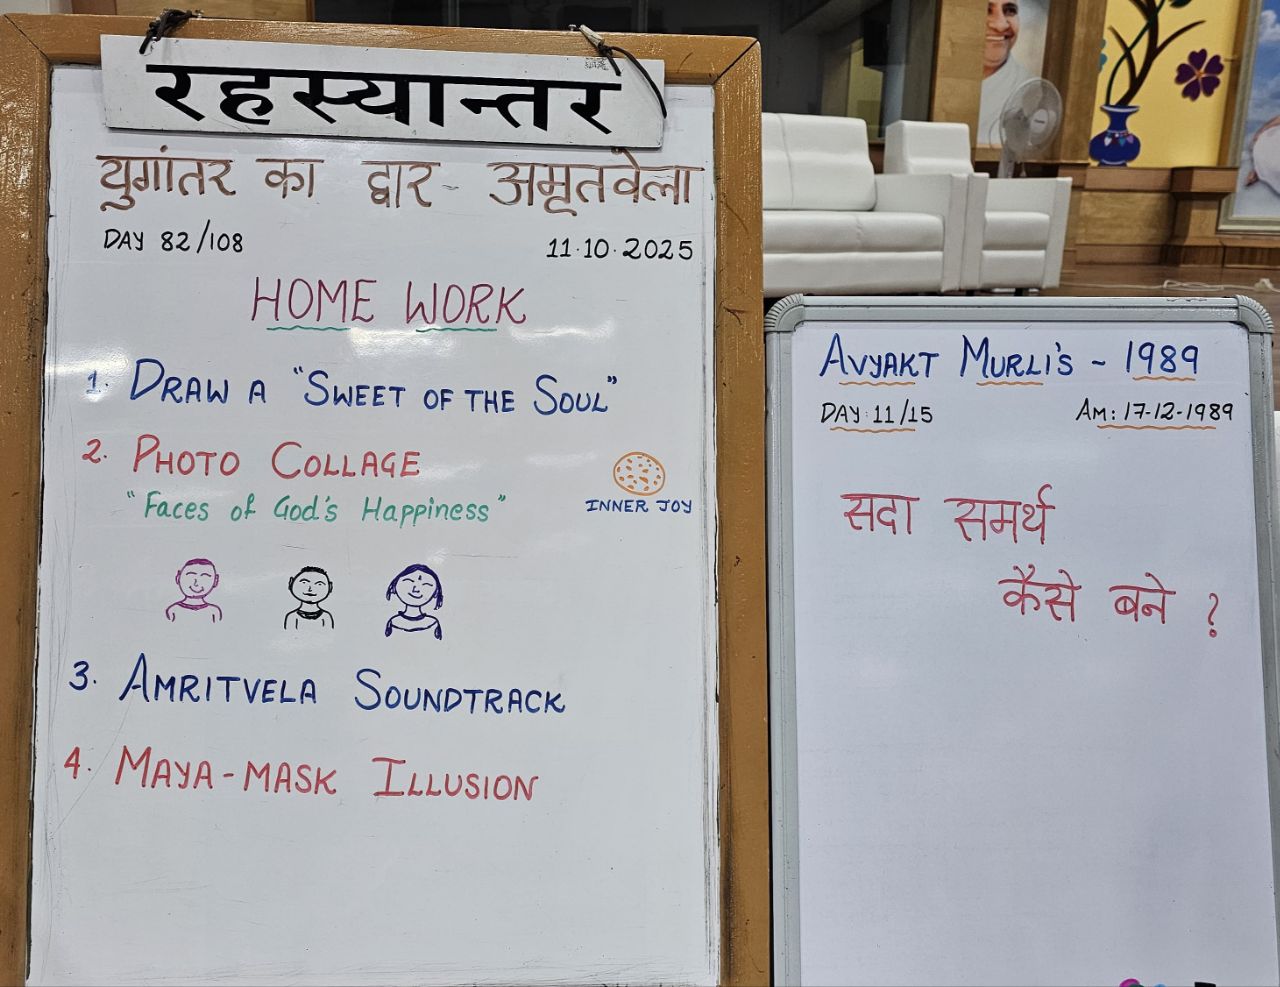 रहस्यान्तर
युगांतर का द्वार - अमृतवेला
DAY 82/108
11.10.2025
HOME WORK
1. DRAW A "SWEET OF THE SOUL"
2. PHOTO COLLAGE
"Faces of God's Happiness"
INNER JOY
3. AMRITVELA SOUNDTRACK
4. MAYA-MASK ILLUSION
AVYAKT MURLI'S - 1989
DAY: 11/15
AM: 17-12-1989
सदा समर्थ
कैसे बने ?